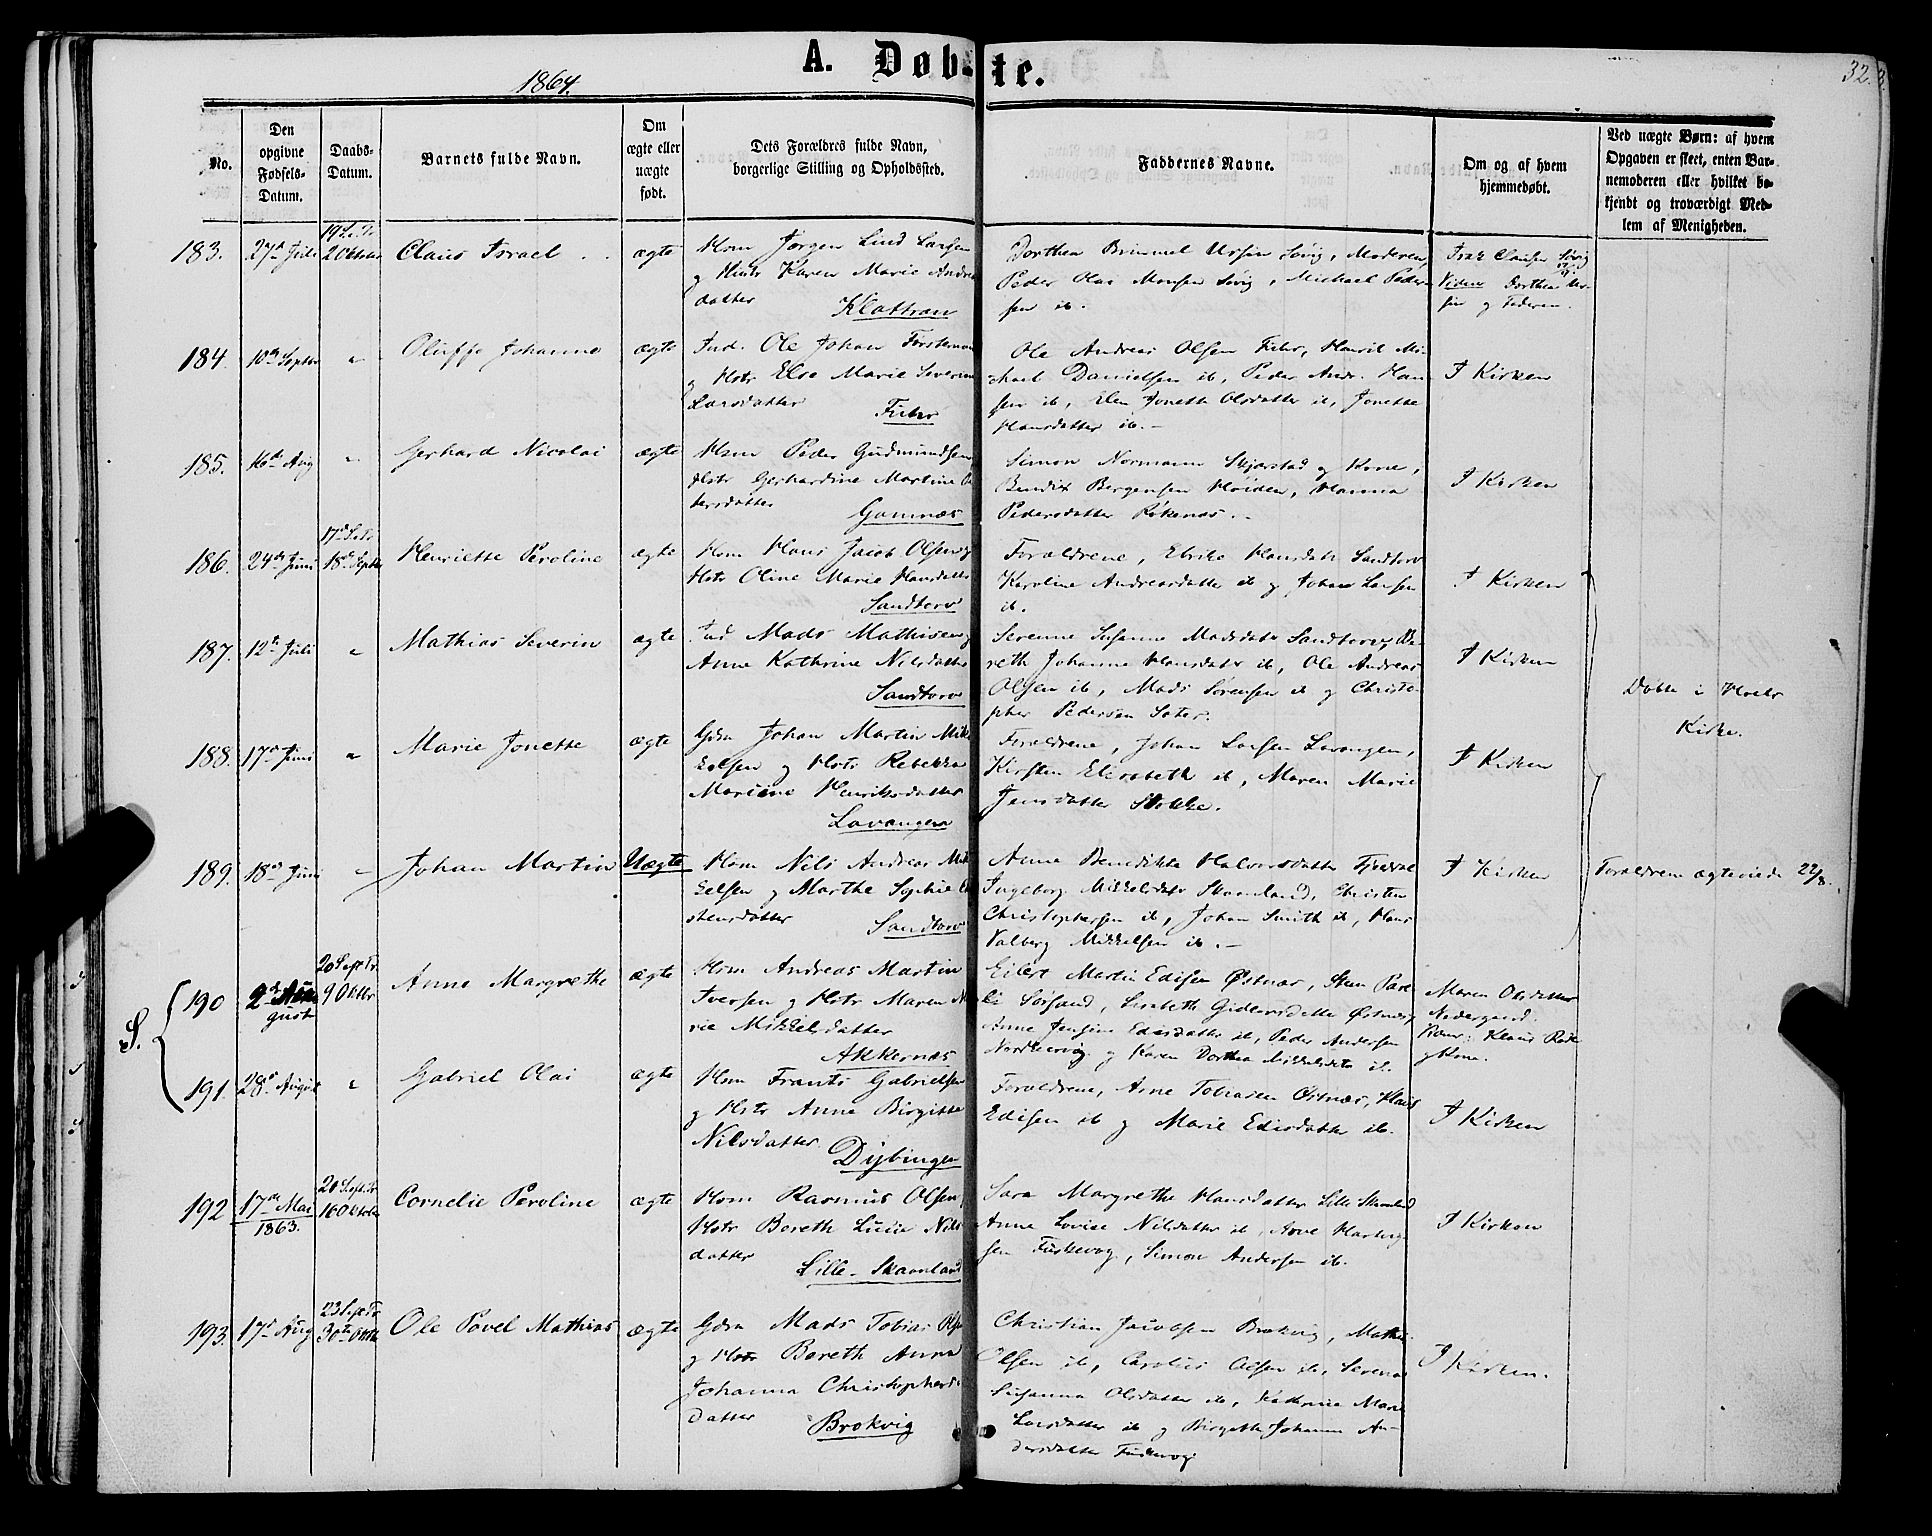 A. Døbte.
1864.
32.
No.
Den
opgivne
Fødsels-
Datum.
Daabs-
Datum.
Barnets fulde Navn.
Om
ægte eller
uægte
født.
Dets Forældres fulde Navn,
borgerlige Stilling og Opholdssted.
Faddernes Navne.
Om og af hvem
hjemmedøbt.
Ved uægte Børn: af hvem
Opgaven er skeet, enten Bar-
nemoderen eller hvilket be-
kjendt og troværdigt Med-
lem af Menigheden.
183. 27de Juli 2 Oktober Claus Israel ægte
Hsm Jørgen Lind Larsen
og Hustr Karen Marie Andrea
datter Klattran
Dorthea Brimmel Ursin Sørig, Moderen,
Peder Olai Monsen Sørig, Michael Peder-
sen ib.
Isak Clausen Sørig
Viden Dorthea Ur-
sin og Faderen.
184. 10de Septbr " Oluffe Johanna ægte
Ind. Ole Johan
og Hstr Else Marie Severine
Larsdatter
Ole Andreas Olsen, Henrik Mi-
chael Danielsen ib, Peder Andr. Han-
sen ib, Elen Jonette Olsdatter ib, Jonette
Hansdatter ib.-
I Kirken
185. 16de Aug " Gerhard Nicolai ægte
Hsm Peder Gudmundsen
Hstr Gerhardine Martine Pe
dersdatter Gamnæs
Simon Normann Skjærstad og Kone,
Bendix Bergersen Høiden, Hanna
Pedersdatter Røkenæs.-
I Kirken
186. 24de Juni 17de S.e.Tr. 18de Septbr Henriette Peroline ægte
Hsm Hans Jacob Olsen og
Hstr Oline Marie Hansdatter
Sandtorv
Forældrene, Elrike Hansdatr Sandtorv
Karoline Andreasdatter ib og Johan Larsen
ib.
I Kirken
187. 12te Juli " Mathias Severin ægte
Ind Mads Mathisen og
Anne Kathrine Nilsdatter
Sandtorv
Serenne Susanne Madsdatr Sandtorv, Be-
reth Johanna Hansdatr ib, Ole Andreas
Olsen ib, Mads Sørensen ib og Christo-
pher Pedersen Sater.
I Kirken
Døbte i Hols
Kirke.
188. 17de Juni " Marie Jonette ægte
Gdm Johan Martin Mik
kelsen og Hstr Rebekka
Marine Henriksdatter
Lavangen
Forældrene, Johan Larsen Lavangen,
Kirsten Elisabeth ib, Maren Marie
Jensdatter Stokke.
I Kirken
189. 18de Juni " Johan Martin Uægte
Hsm Nils Andreas Mik
kelsen og Marthe Sophie
stensdatter Sandtorv
Anne Benedikte Halvorsdatter Fjeldal
Ingeborg Mikkelsdatr Skaanland, Christen
Christophersen ib, Johan Smith ib, Hans
Valberg Mikkelsen ib.-
I Kirken
Forældrene ægteviede 22/8.
S.
190 2de August 20 S.e.Tr. 9 Oktbr Anne Margrethe ægte
Hsm Andreas Martin
Iversen og Hstr Maren Ma
rie Mikkelsdatter
Akkernæs
Eilert Martin Edisen Østnæs, Sten Pare-
li Sørsand, Lisabeth Gidionsdatter Østnæs,
Anne Jensine Edisdatter ib, Peder Andersen
og Karen Dorthea Mikkelsdatr ib.
Maren Olsdatter
Nedergaard.
Klaus
og Kone.
191. 28de August " Gabriel Olai ægte
Hsm Frants Gabrielsen
og Hstr Anne Birgitte
Nilsdatter Dybingen
Forældrene, Arne Tobiasen Østnæs, Hans
Edisen ib og Marie Edisdatter ib.
I Kirken
192 17de Mai 1863. 16 Oktober Cornelie Peroline ægte
Hsm Rasmus Olsen
Hstr Bereth Lucie Nils
datter
Lille-Skaanland
Sara Margrethe Hansdatter Lille Skaanland
Anne Lovise Nilsdatter ib, Arne Hartvig-
sen Fuskevog, Simon Andersen ib.
I Kirken
193. 17de Aug 23 S.e.Tr. 30te Oktbr Ole Povel Mathias ægte
Gdm Mads Tobias Olsen
og Hstr Bereth Anna
Johanna Christophers
datter Brokvig
Christian Jacobsen Brokvig, Mathis
Olsen ib, Carolius Olsen ib, Serena
Susanna Olsdatter ib, Kathrine Marie
Larsdatter ib og Birgitte Johanna An-
dersdatter Fuskevog
I Kirken.